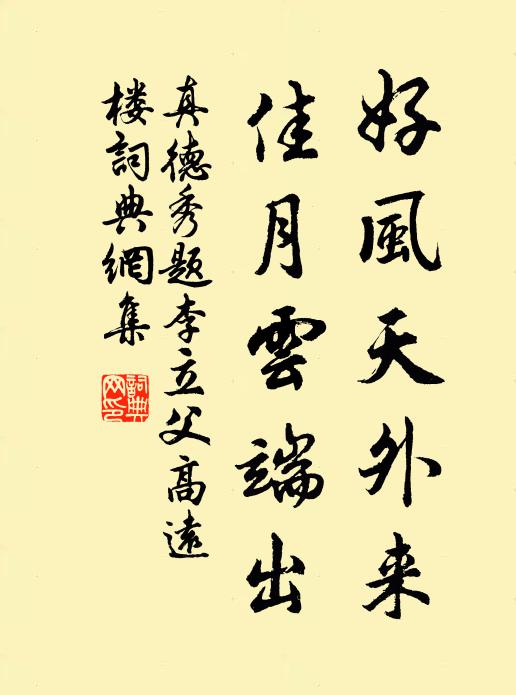 好風天外来
佳月雲端出
真德秀题李立父高遠
楼詞典網集
詞典
网印